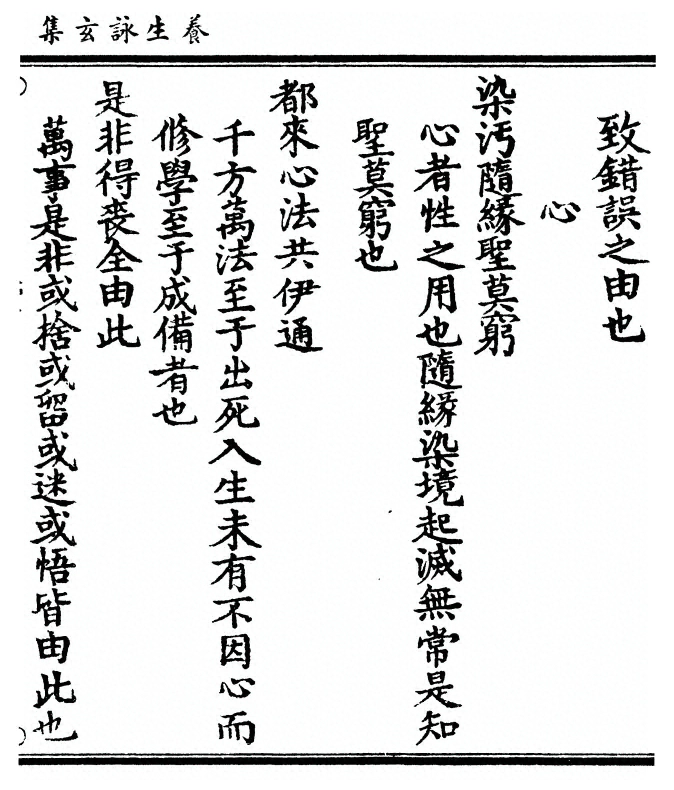 養生詠玄集
致錯誤之由也
心
染汚隨緣聖莫窮
心者性之用也隨緣染境起滅無常是知
聖莫窮也
都來心法共伊通
千方萬法至于出死入生未有不因心而
修學至于成備者也
是非得喪全由此
萬事是非或捨或留或迷或悟皆由此也